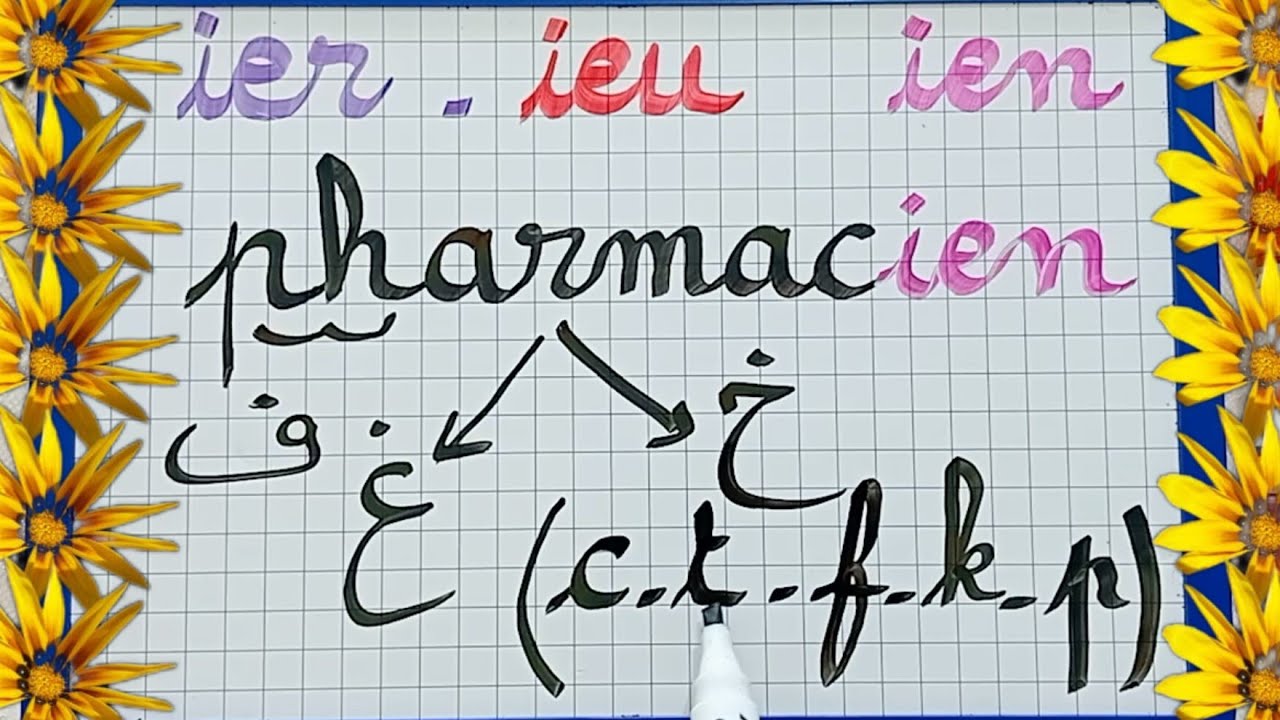 ier . ieu ien
pharmacien
ف غ خ
(c.t.f.k.p)